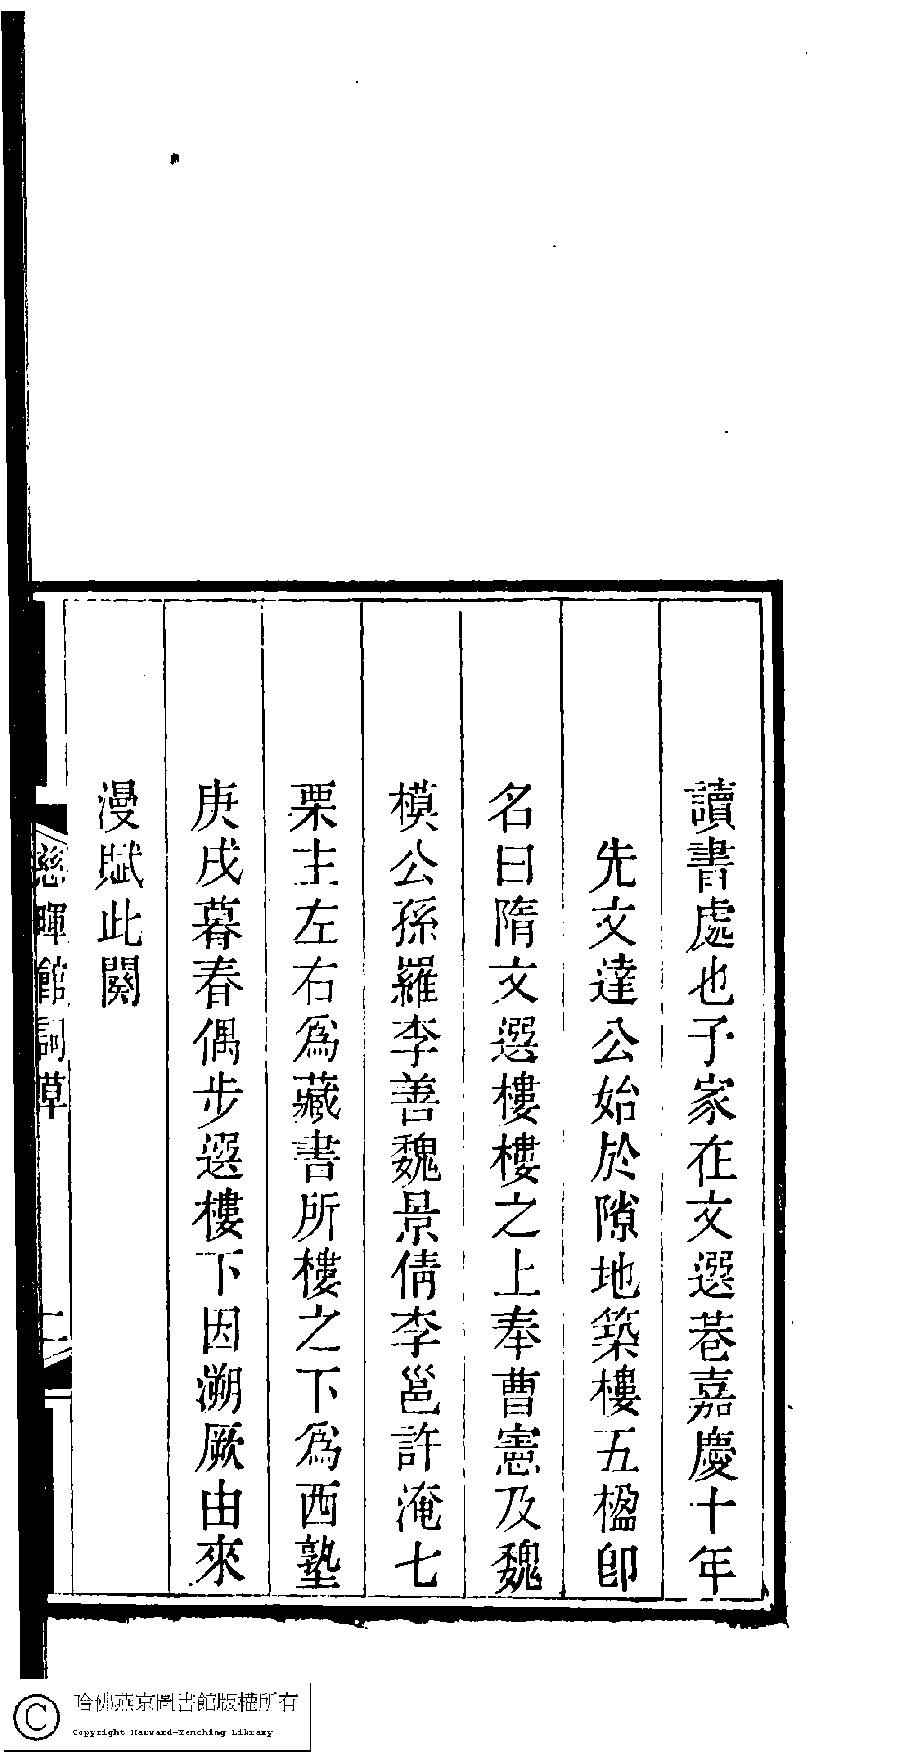 讀書處也予家在文選巷嘉慶十年
先文達公始於隙地築樓五楹卽
名曰隋文選樓樓之上奉曹憲及魏
模公孫羅李善魏景倩李邕許淹七
栗主左右爲藏書所樓之下爲西塾
庚戌暮春偶步選樓下因溯厥由來
漫賦此闋
慈暉館詞草
二
哈佛燕京圖書館版權所有
Copyright Harvard-Yenching Library